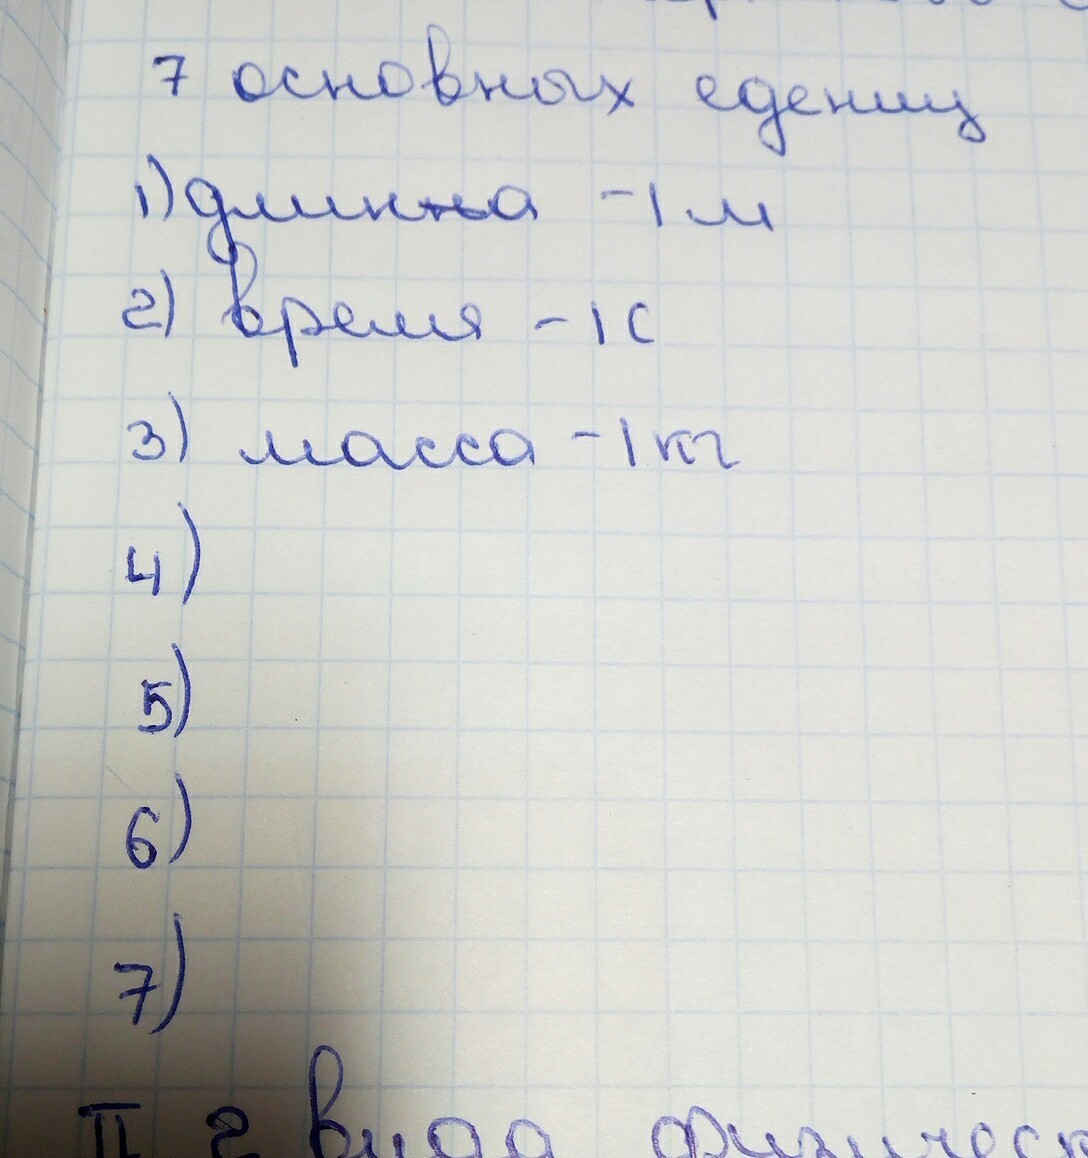 7 основных едениц
1) длинна - 1 м
2) время - 1 с
3) масса - 1 кг
4)
5)
6)
7)
II 2 вида физическ